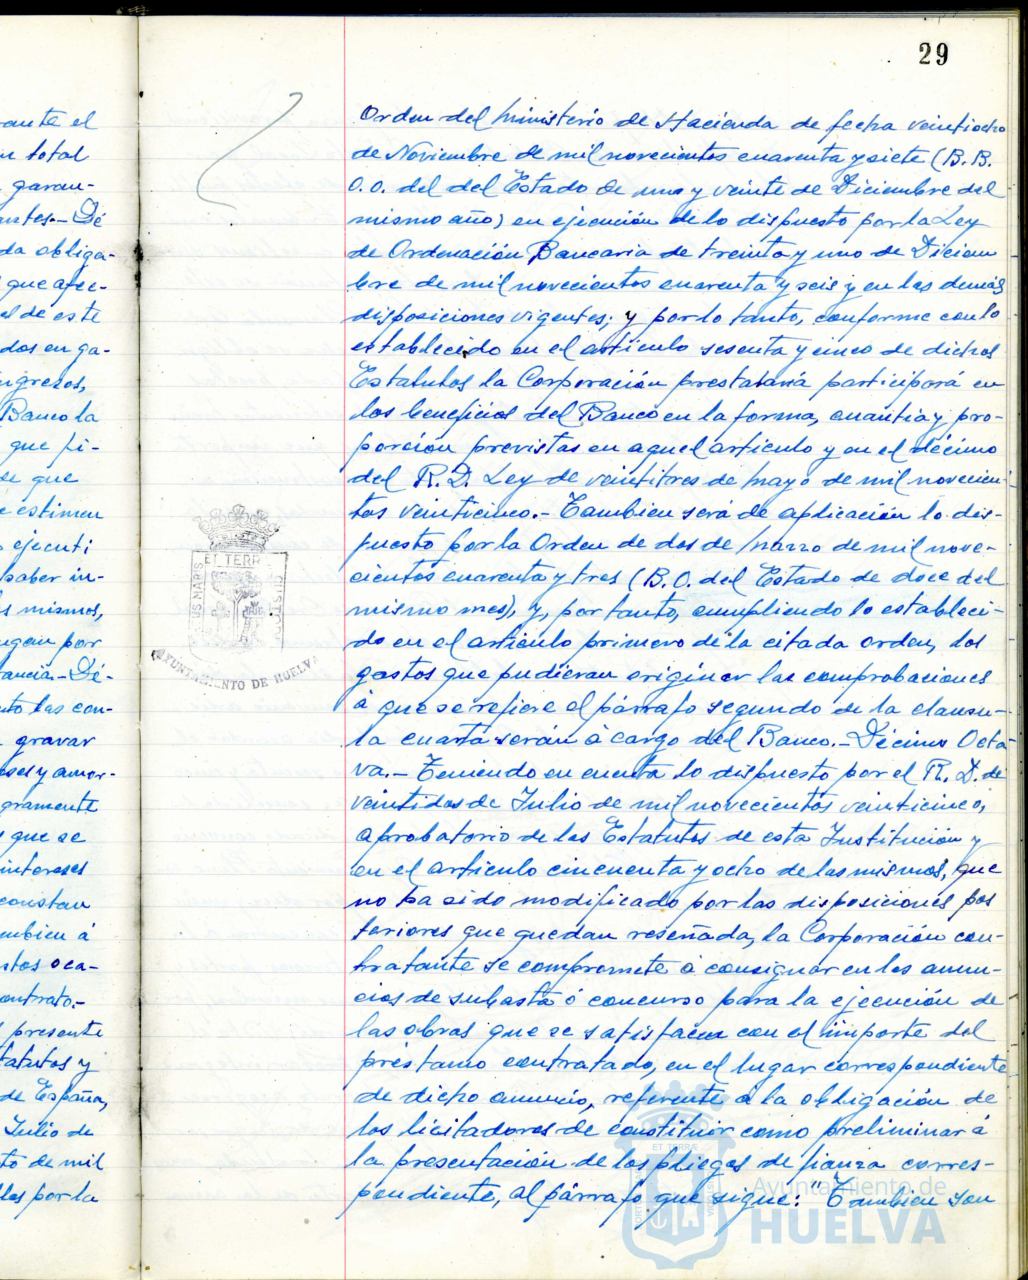 29
Orden del Ministerio de Hacienda de fecha veintiocho
de Noviembre de mil novecientos cuarenta y siete (B.B.
O.O. del del Estado de uno y veinte de Diciembre del
mismo año) en ejecución de lo dispuesto por la Ley
de Ordenación Bancaria de treinta y uno de Diciem
bre de mil novecientos cuarenta y seis y en las demás
disposiciones vigentes; y por lo tanto, conforme con lo
establecido en el artículo sesenta y cinco de dichos
Estatutos la Corporación prestataria participará en
los beneficios del Banco en la forma, cuantía y pro-
porción previstas en aquel artículo y en el décimo
del R.D. Ley de veintitres de Mayo de mil novecien-
tos veinticinco.- Tambien será de aplicación lo dis-
puesto por la Orden de dos de Marzo de mil nove-
cientos cuarenta y tres (B.O. del Estado de doce del
mismo mes), y, por tanto, cumpliendo lo estableci-
do en el artículo primero de la citada orden, los
gastos que pudieran originar las comprobaciones
á que se refiere el párrafo segundo de la clausu-
la cuarta serán á cargo del Banco.- Décimo Octa-
va.- Teniendo en cuenta lo dispuesto por el R.D. de
veintidos de Julio de mil novecientos veinticinco,
aprobatorio de los Estatutos de esta Institución y
en el artículo cincuenta y ocho de los mismos, que
no ha sido modificado por las disposiciones pos
teriores que quedan reseñada, la Corporación con-
tratante se compromete á consignar en los anun-
cios de subasta ó concurso para la ejecución de
las obras que se satisfacen con el importe del
préstamo contratado, en el lugar correspondiente
de dicho anuncio, referente á la obligación de
los licitadores de constituir como preliminar á
la presentación de los pliegos de fianza corres-
pondiente, al párrafo que sigue: "Tambien son
rante el
n total
garan-
ntes.- Dé
da obliga-
que afec-
el de este
dos en ga-
ingresos,
Banco la
que fi-
se que
é estimen
ejecuti
saber in-
s mismos,
ngan por
tancia.- Dé-
nto las con-
gravar
eses y amor-
gramente
que se
intereses
constan
mbien á
stos oca-
ontrato.-
presente
tatutos y
de España,
Julio de
to de mil
los por la
ET TERRÆ
PORTUS MARIS
CUSTODIA
AYUNTAMIENTO DE HUELVA
ET TERRÆ
Ayuntamiento de
HUELVA